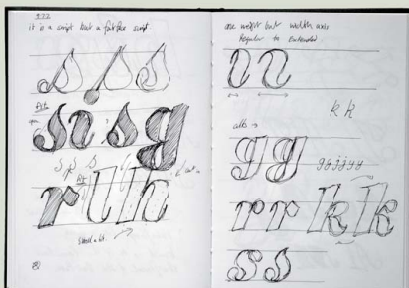 it is a script but a fatface script
s s s
s n s g
s s s
r l h
one weight but width axis
Regular to Extended
n n
k k
alts →
g g
g g j j y y
r r k k
s s